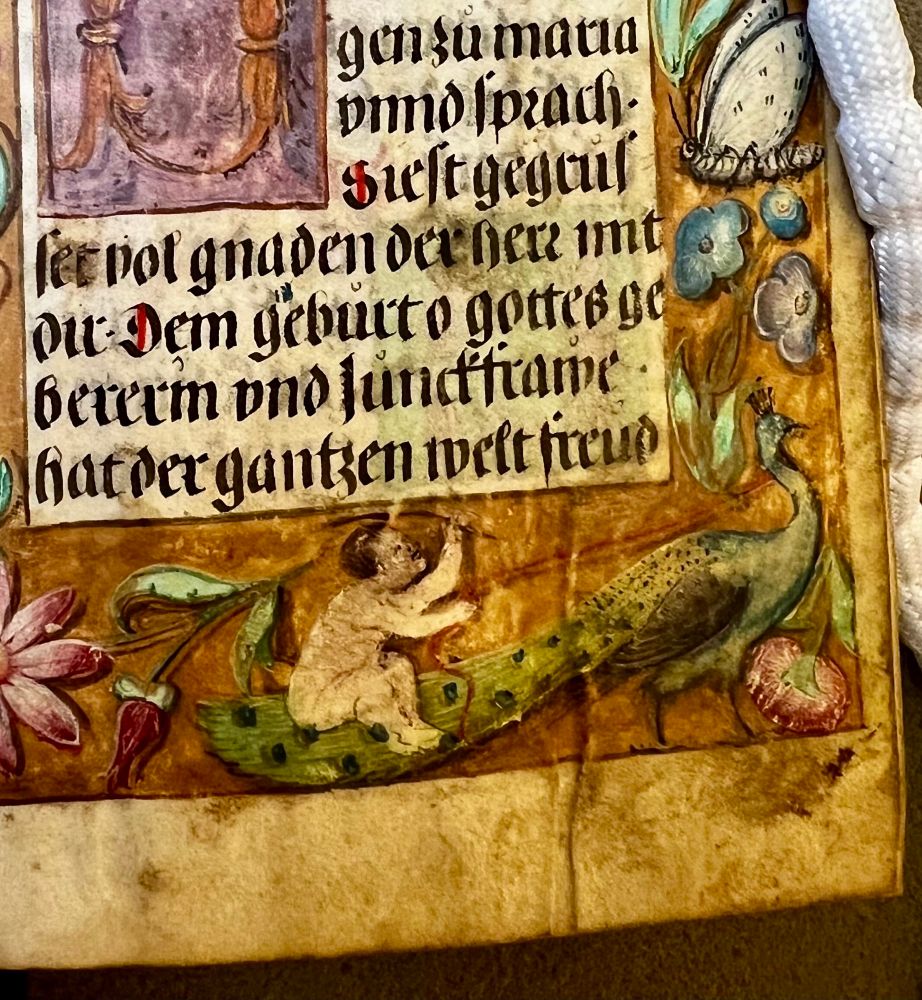 gen zů maria
vnnd sprach·
Siest gegrüs
set vol gnaden der herr mit
dir· Dem gebůrt o gottes ge
bererin vnd Junckfrawe·
hat der gantzen welt freud